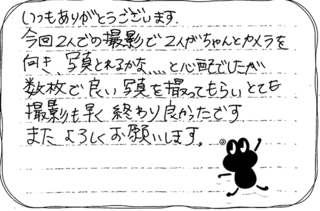 いつもありがとうございます
今回2人での撮影で2人がちゃんとカメラを
向き、写真とれるかな、、、、と心配でしたが
数枚で良い写真を撮ってもらいとても
撮影も早く終わり良かったです
またよろしくお願いします。